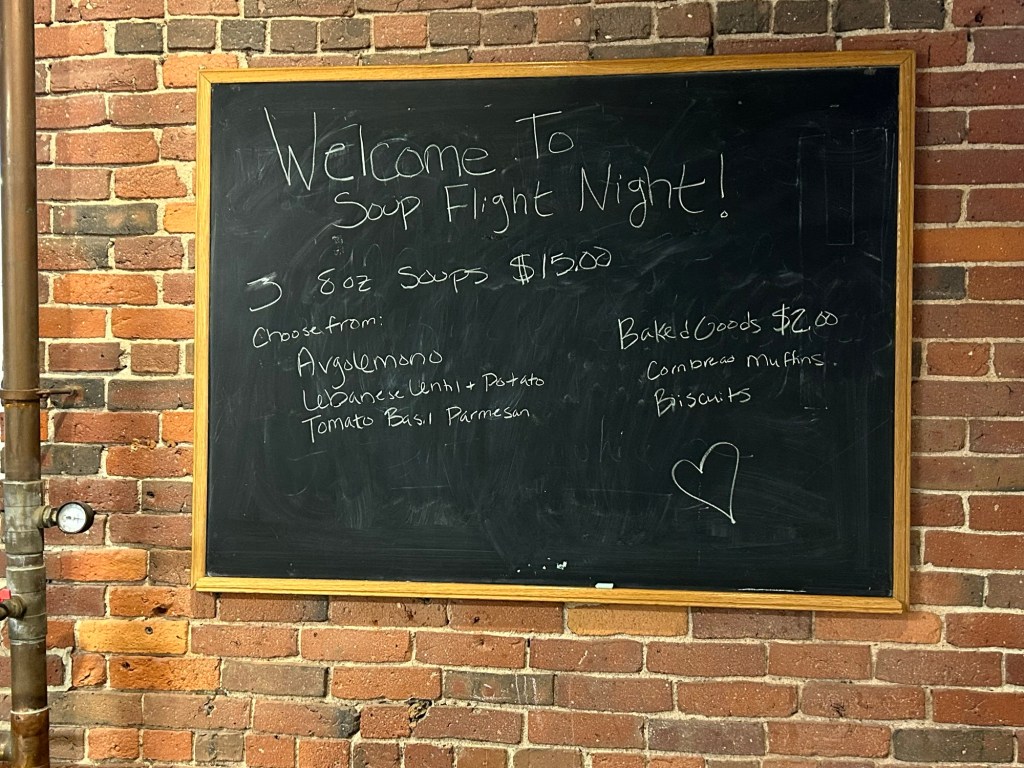 Welcome To
Soup Flight Night!
3 8oz Soups $15.00
Choose from:
Avgolemono
Lebanese Lentil + Potato
Tomato Basil Parmesan
Baked Goods $2.00
Cornbread Muffins
Biscuits
hi